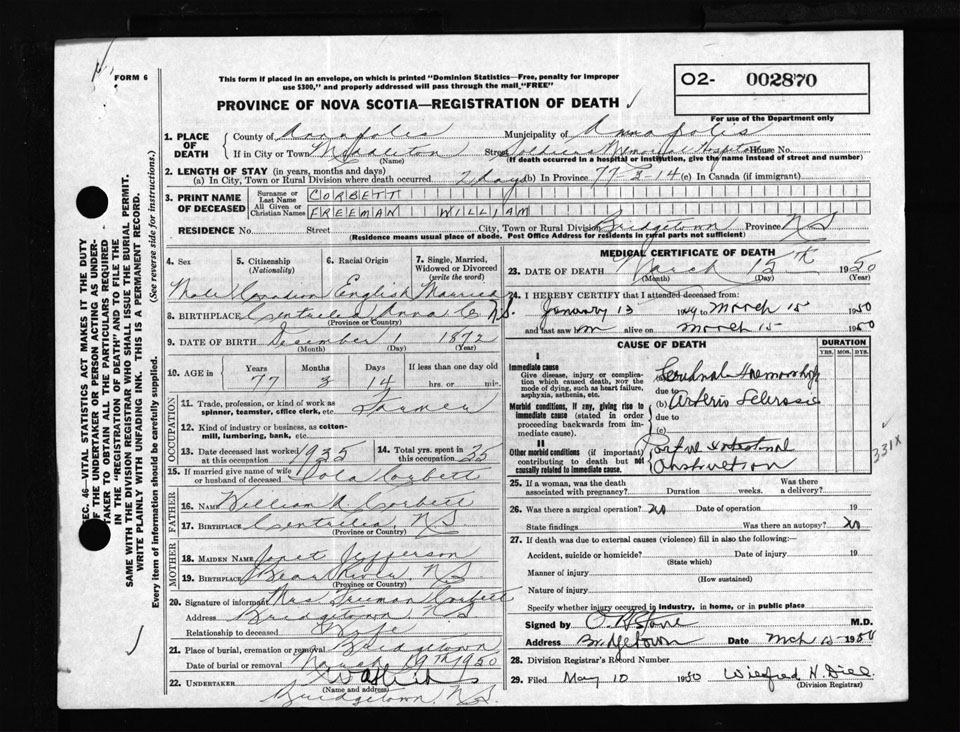 FORM 6
This form if placed in an envelope, on which is printed "Dominion Statistics—Free, penalty for improper
use $300," and properly addressed will pass through the mail "FREE"
O2- 002870
PROVINCE OF NOVA SCOTIA—REGISTRATION OF DEATH
For use of the Department only
1. PLACE OF DEATH
County of Annapolis Municipality of Annapolis
If in City or Town Middleton Street Soldiers Memorial Hospital House No.
(Name) (If death occurred in a hospital or institution, give the name instead of street and number)
2. LENGTH OF STAY (in years, months and days)
(a) In City, Town or Rural Division where death occurred 2 days (b) In Province 77-3-14 (c) In Canada (if immigrant)
3. PRINT NAME OF DECEASED
Surname or Last Name CORBETT
All Given or Christian Names FREEMAN WILLIAM
RESIDENCE No. Street City, Town or Rural Division Bridgetown Province NS
(Residence means usual place of abode. Post Office Address for residents in rural parts not sufficient)
4. Sex
Male
5. Citizenship (Nationality)
Canadian
6. Racial Origin
English
7. Single, Married, Widowed or Divorced (write the word)
Married
8. BIRTHPLACE Centrelea Anna Co N.S.
(Province or Country)
9. DATE OF BIRTH December 1 1872
(Month) (Day) (Year)
10. AGE in
Years Months Days If less than one day old
77 3 14 hrs. or min.
OCCUPATION
11. Trade, profession, or kind of work as
spinner, teamster, office clerk, etc. Farmer
12. Kind of industry or business, as cotton-
mill, lumbering, bank, etc.
13. Date deceased last worked
at this occupation 1935
14. Total yrs. spent in
this occupation 35
15. If married give name of wife
or husband of deceased Cora Corbett
FATHER
16. NAME William A Corbett
17. BIRTHPLACE Centrelea, N.S.
(Province or Country)
MOTHER
18. MAIDEN NAME Janet Jefferson
19. BIRTHPLACE Bear River, N.S
(Province or Country)
20. Signature of informant Mrs Freeman Corbett
Address Bridgetown, N S
Relationship to deceased Wife
21. Place of burial, cremation or removal Bridgetown
Date of burial or removal March 19th 1950
22. UNDERTAKER
(Name and address)
Bridgetown, N.S.
MEDICAL CERTIFICATE OF DEATH
23. DATE OF DEATH March 15th 1950
(Month) (Day) (Year)
24. I HEREBY CERTIFY that I attended deceased from:
January 13 1949 to March 15 1950
and last saw him alive on March 15 1950
CAUSE OF DEATH
DURATION
YRS. MOS. DYS.
I
Immediate cause
Give disease, injury or complication which caused death, NOT the mode of dying, such as heart failure, asphyxia, asthenia, etc.
(a) Cerebral Haemorrhage
due to
Morbid conditions, if any, giving rise to immediate cause (stated in order proceeding backwards from immediate cause).
(b) Arterio Sclerosis
due to
(c)
II
Other morbid conditions (if important) contributing to death but not causally related to immediate cause.
Intestinal
Obstruction
331X
25. If a woman, was the death
associated with pregnancy? Duration weeks. Was there
a delivery?
26. Was there a surgical operation? No Date of operation 19
State findings Was there an autopsy? No
27. If death was due to external causes (violence) fill in also the following:—
Accident, suicide or homicide? Date of injury 19
(State which)
Manner of injury
(How sustained)
Nature of injury
Specify whether injury occurred in industry, in home, or in public place
Signed by M.D.
Address Bridgetown Date Mch 15 1950
28. Division Registrar's Record Number
29. Filed May 10 1950 Wilfred H. Dill
(Division Registrar)
SEC. 46—VITAL STATISTICS ACT MAKES IT THE DUTY
OF THE UNDERTAKER OR PERSON ACTING AS UNDER-
TAKER TO OBTAIN ALL THE PARTICULARS REQUIRED
IN THE "REGISTRATION OF DEATH" AND TO FILE THE
SAME WITH THE DIVISION REGISTRAR WHO SHALL ISSUE THE BURIAL PERMIT.
WRITE PLAINLY WITH UNFADING INK. THIS IS A PERMANENT RECORD.
Every item of information should be carefully supplied. (See reverse side for instructions.)